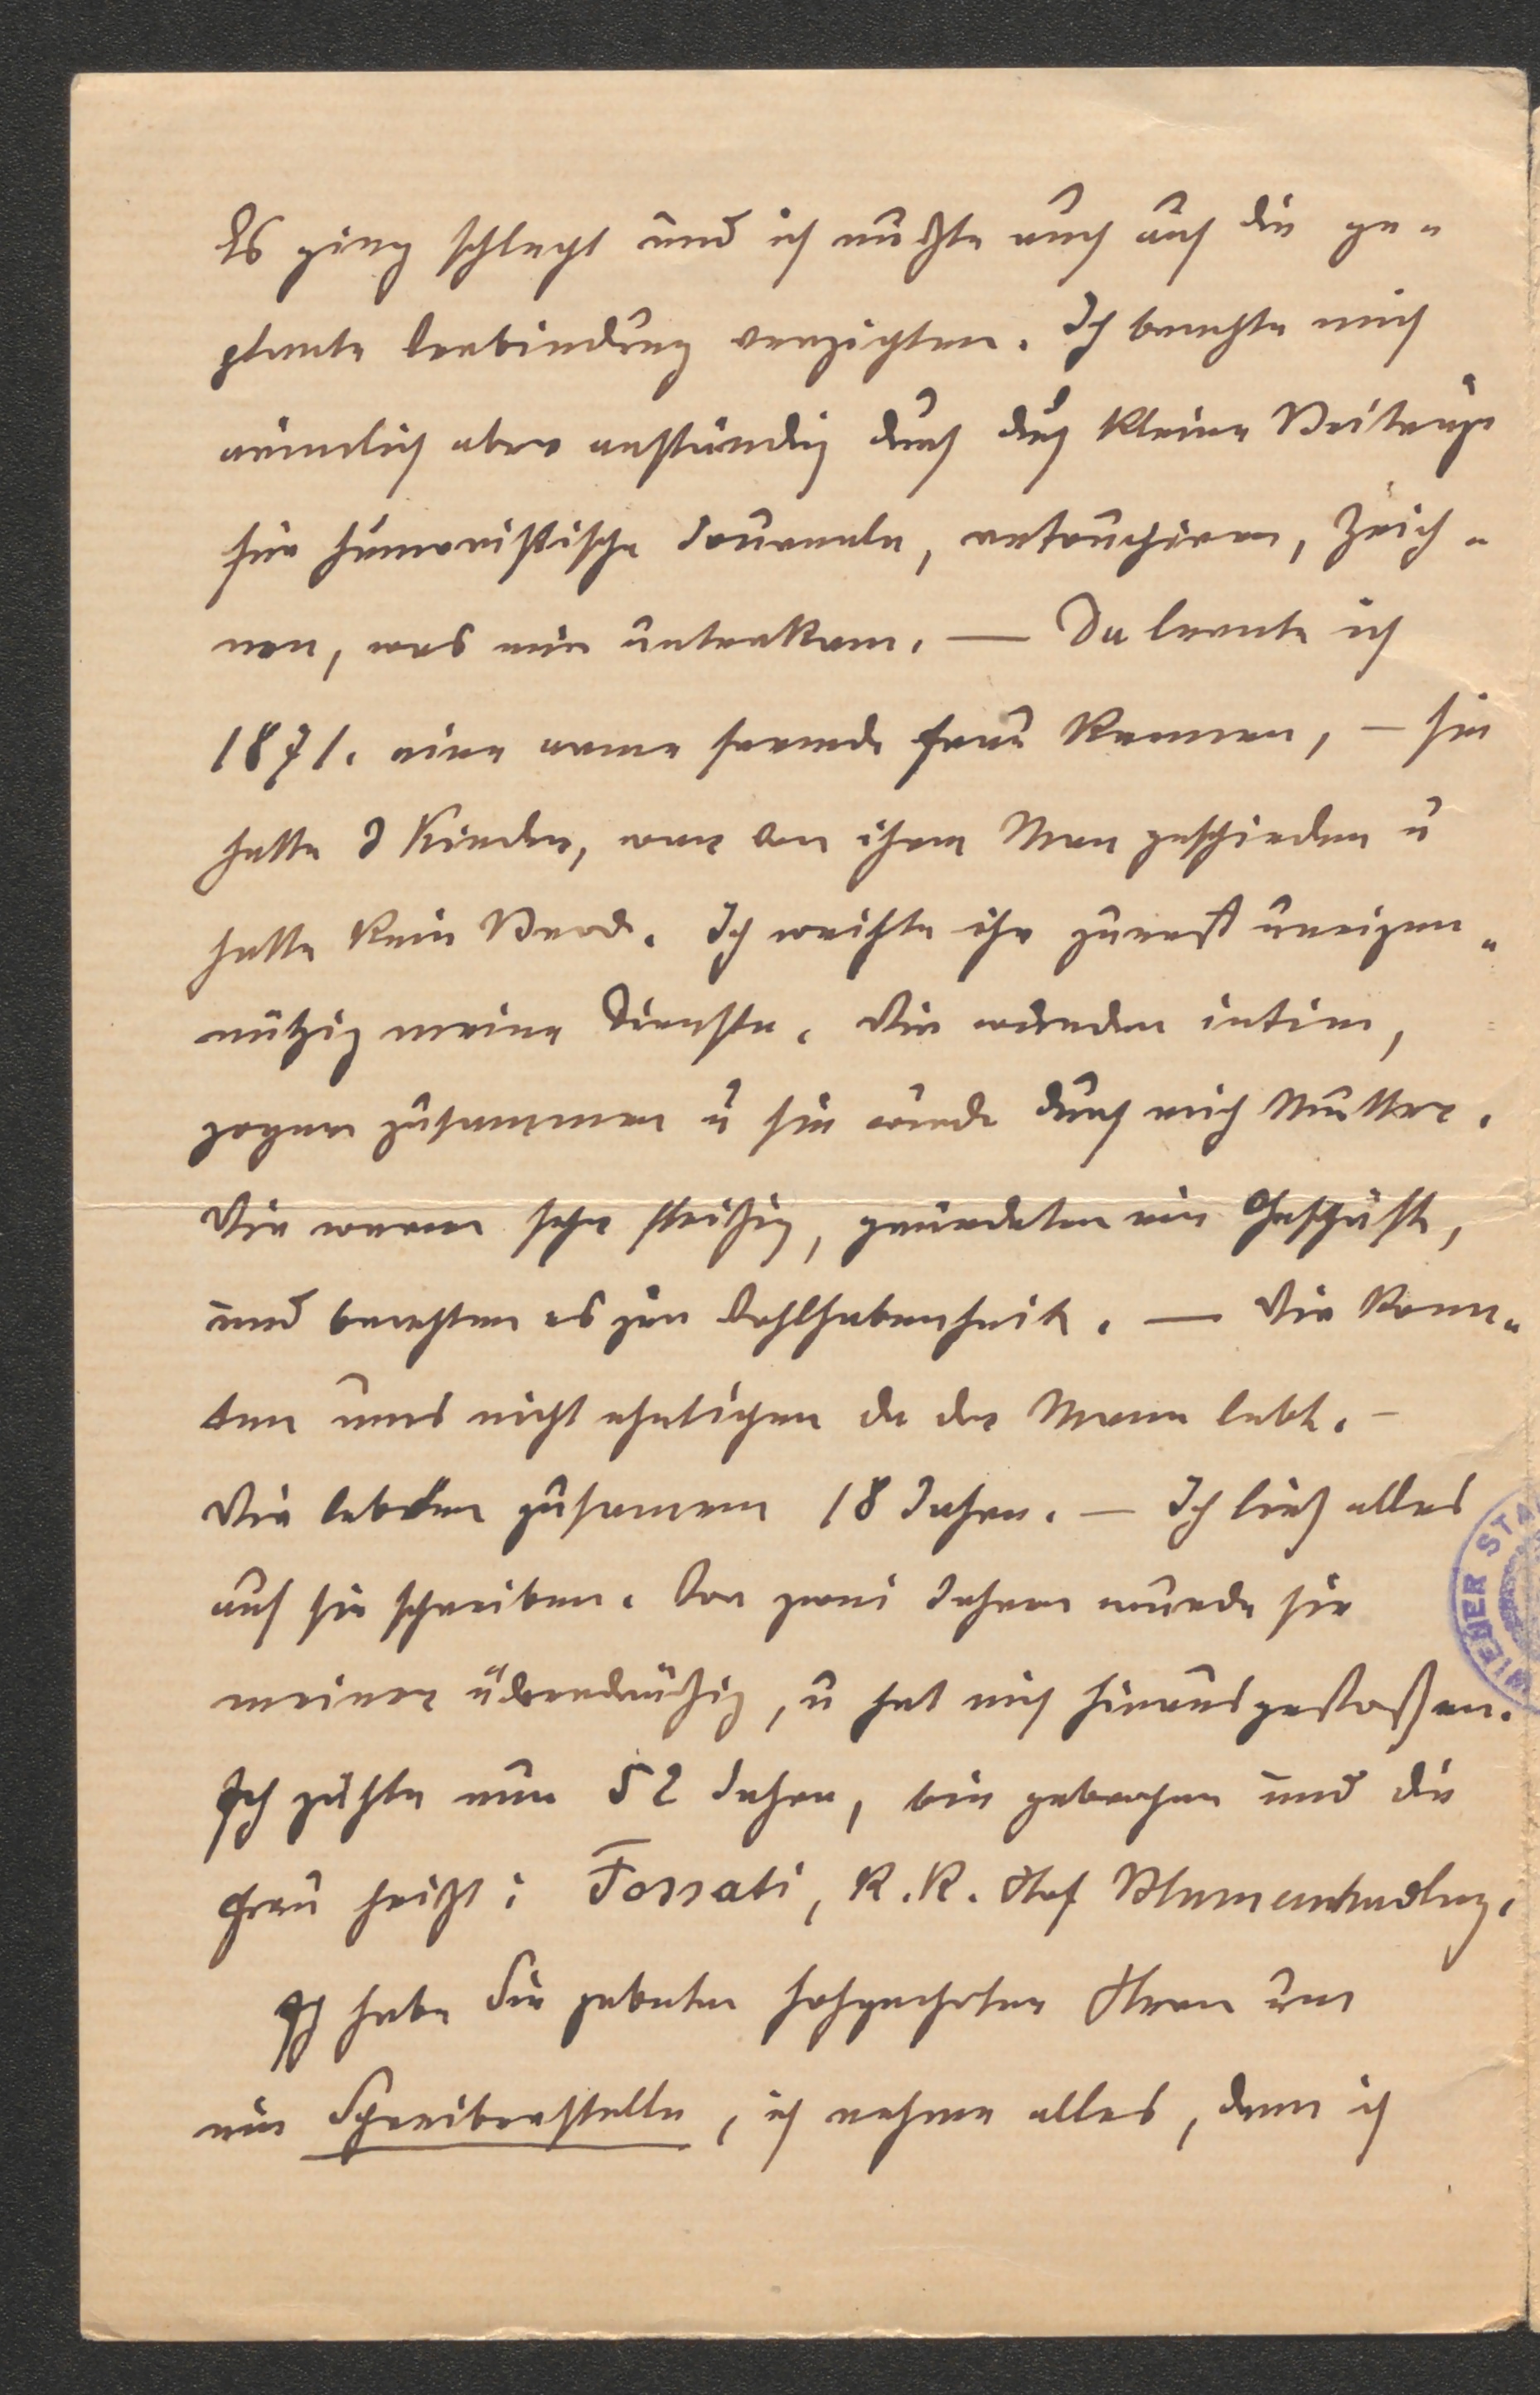 Es ging schlecht und ich mußte auch auf die ge-
plante Verbindung verzichten. Ich brachte mich
ärmlich aber anständig durch durch kleine Beiträge
für humoristische Journale, retouchiren, Zeich-
nen, was mir unterkam. — Da lernte ich
1871. eine arme fremde Frau kennen, – sie
hatte 2 Kinder, war von ihrem Man geschieden u
hatte kein Brod. Ich weihte ihr zuerst uneigen-
nützig meine Dienste. Wir wurden intim,
zogen zusammen u sie wurde durch mich Mutter.
Wir waren sehr fleißig, gründeten ein Geschäft,
und brachten es zur Wohlhabenheit. — Wir konn-
ten uns nicht ehelichen da der Mann lebt. –
Wir lebten zusammen 18 Jahre. — Ich ließ alles
auf sie schreiben. Vor zwei Jahren wurde sie
meiner überdrüßig, u hat mich hinausgestoßen.
Ich zähle nun 52 Jahre, bin gebrochen und die
Frau heißt: Fossati, k. k. Hof Blumenhandlug.
Ich habe Sie gebeten hochgeehrter Herr um
eine Schreiberstelle, ich nehme alles, denn ich
WIENER STA